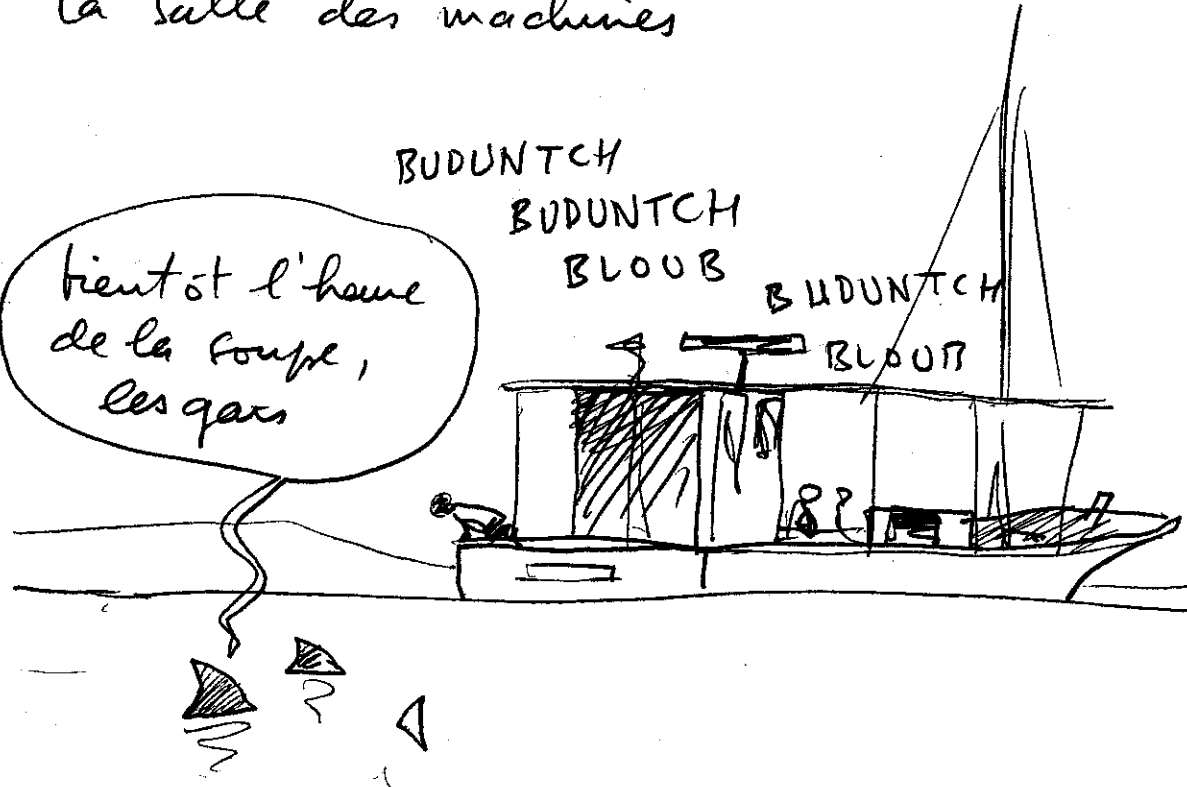 la salle des machines
BUDUNTCH
BUDUNTCH
BLOUB
BUDUNTCH
BLOUB
bientôt l'heure
de la soupe,
les gars